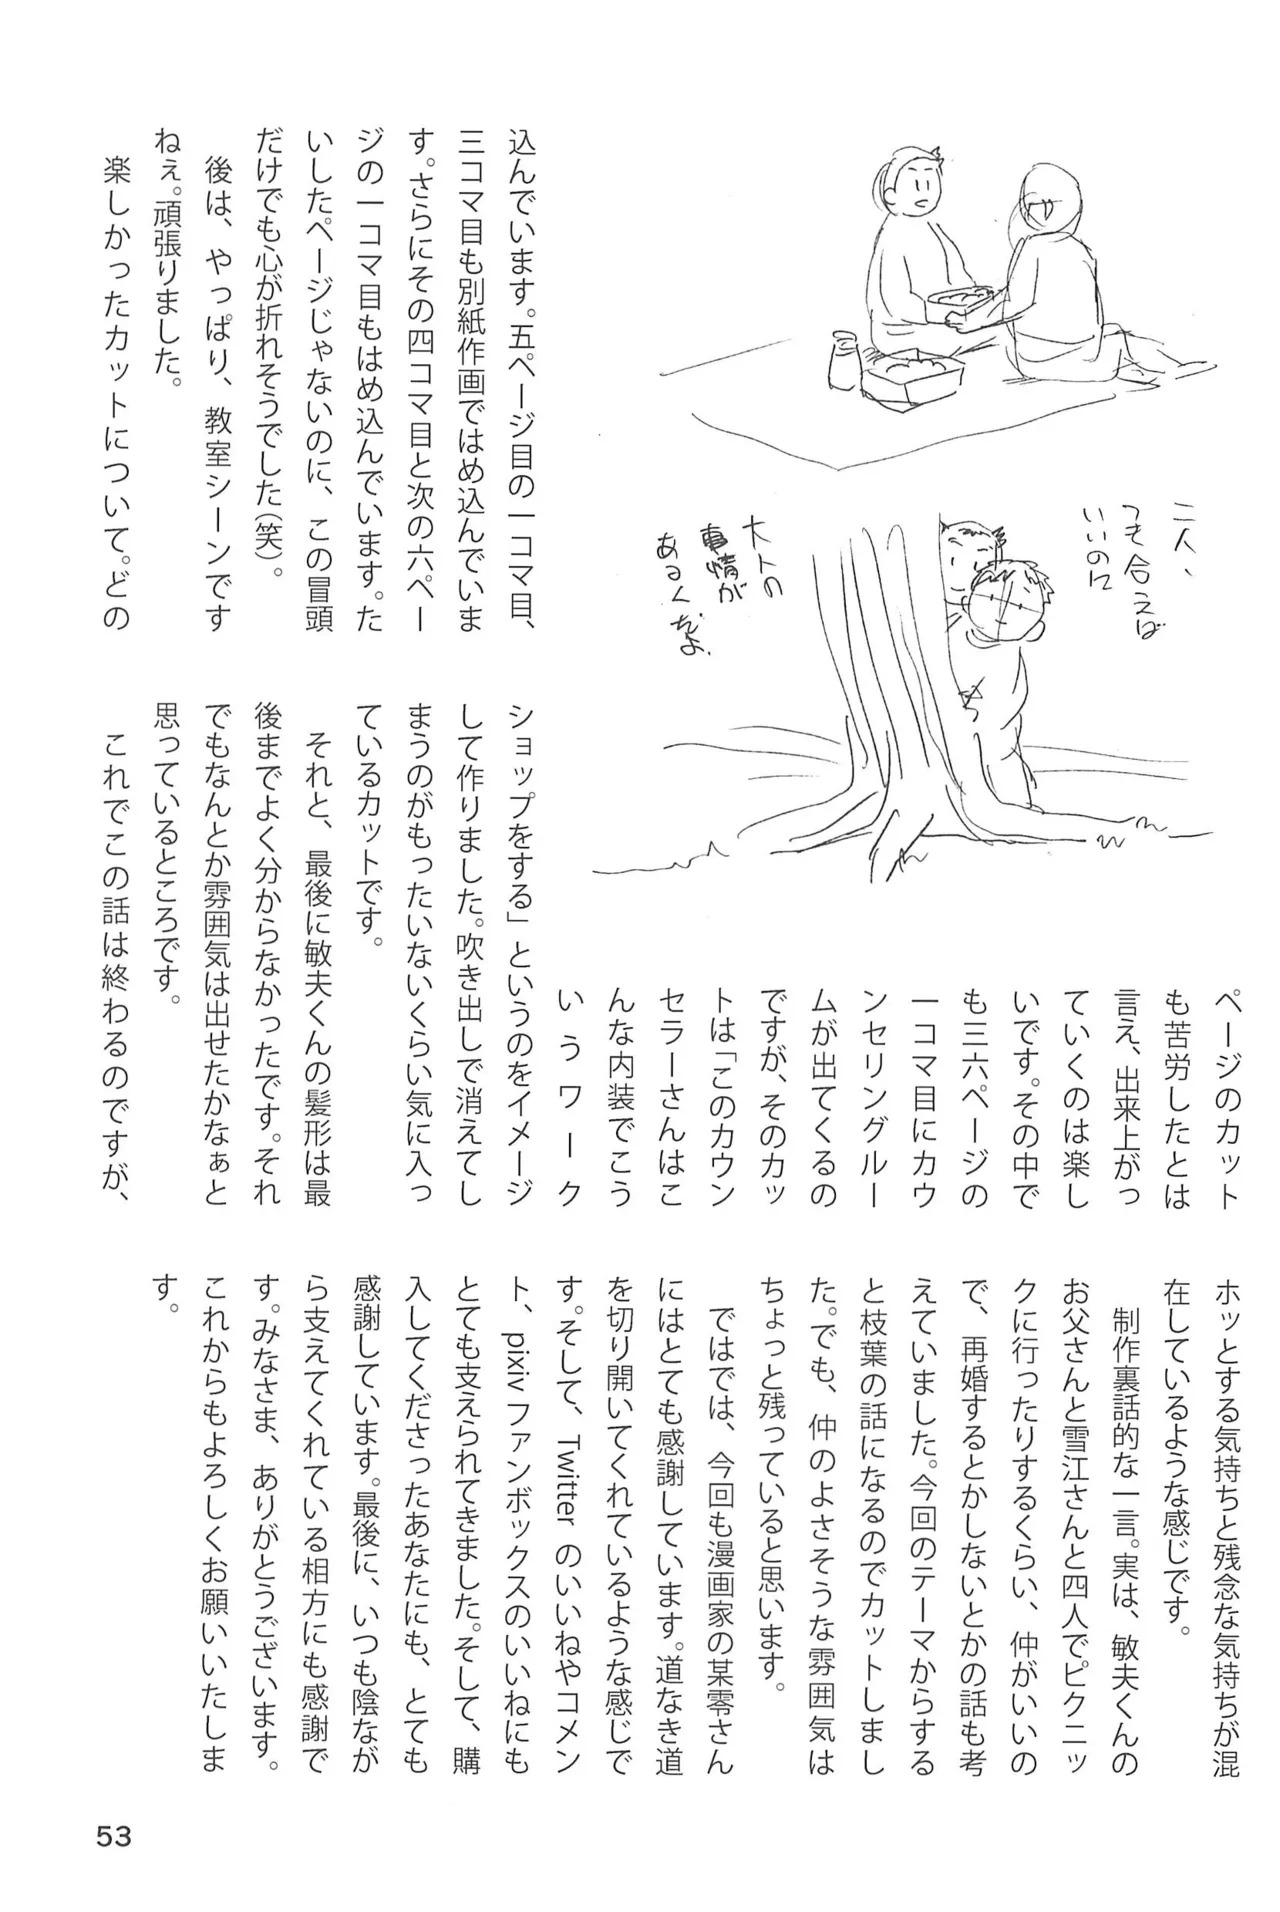 二人、
つき合えば
いいのに
大人の
事情が
あるんだよ。
込んでいます。五ページ目の一コマ目、
三コマ目も別紙作画ではめ込んでいま
す。さらにその四コマ目と次の六ペー
ジの一コマ目もはめ込んでいます。た
いしたページじゃないのに、この冒頭
だけでも心が折れそうでした（笑）。
後は、やっぱり、教室シーンです
ねぇ。頑張りました。
楽しかったカットについて。どの
ページのカット
も苦労したとは
言え、出来上がっ
ていくのは楽し
いです。その中で
も三六ページの
一コマ目にカウ
ンセリングルー
ムが出てくるの
ですが、そのカッ
トは「このカウン
セラーさんはこ
んな内装でこう
いうワーク
ショップをする」というのをイメージ
して作りました。吹き出しで消えてし
まうのがもったいないくらい気に入っ
ているカットです。
それと、最後に敏夫くんの髪形は最
後までよく分からなかったです。それ
でもなんとか雰囲気は出せたかなぁと
思っているところです。
これでこの話は終わるのですが、
ホッとする気持ちと残念な気持ちが混
在しているような感じです。
制作裏話的な一言。実は、敏夫くんの
お父さんと雪江さんと四人でピクニッ
クに行ったりするくらい、仲がいいの
で、再婚するとかしないとかの話も考
えていました。今回のテーマからする
と枝葉の話になるのでカットしまし
た。でも、仲のよさそうな雰囲気は
ちょっと残っていると思います。
ではでは、今回も漫画家の某零さん
にはとても感謝しています。道なき道
を切り開いてくれているような感じで
す。そして、Twitter のいいねやコメン
ト、pixiv ファンボックスのいいねにも
とても支えられてきました。そして、購
入してくださったあなたにも、とても
感謝しています。最後に、いつも陰なが
ら支えてくれている相方にも感謝で
す。みなさま、ありがとうございます。
これからもよろしくお願いいたしま
す。
53